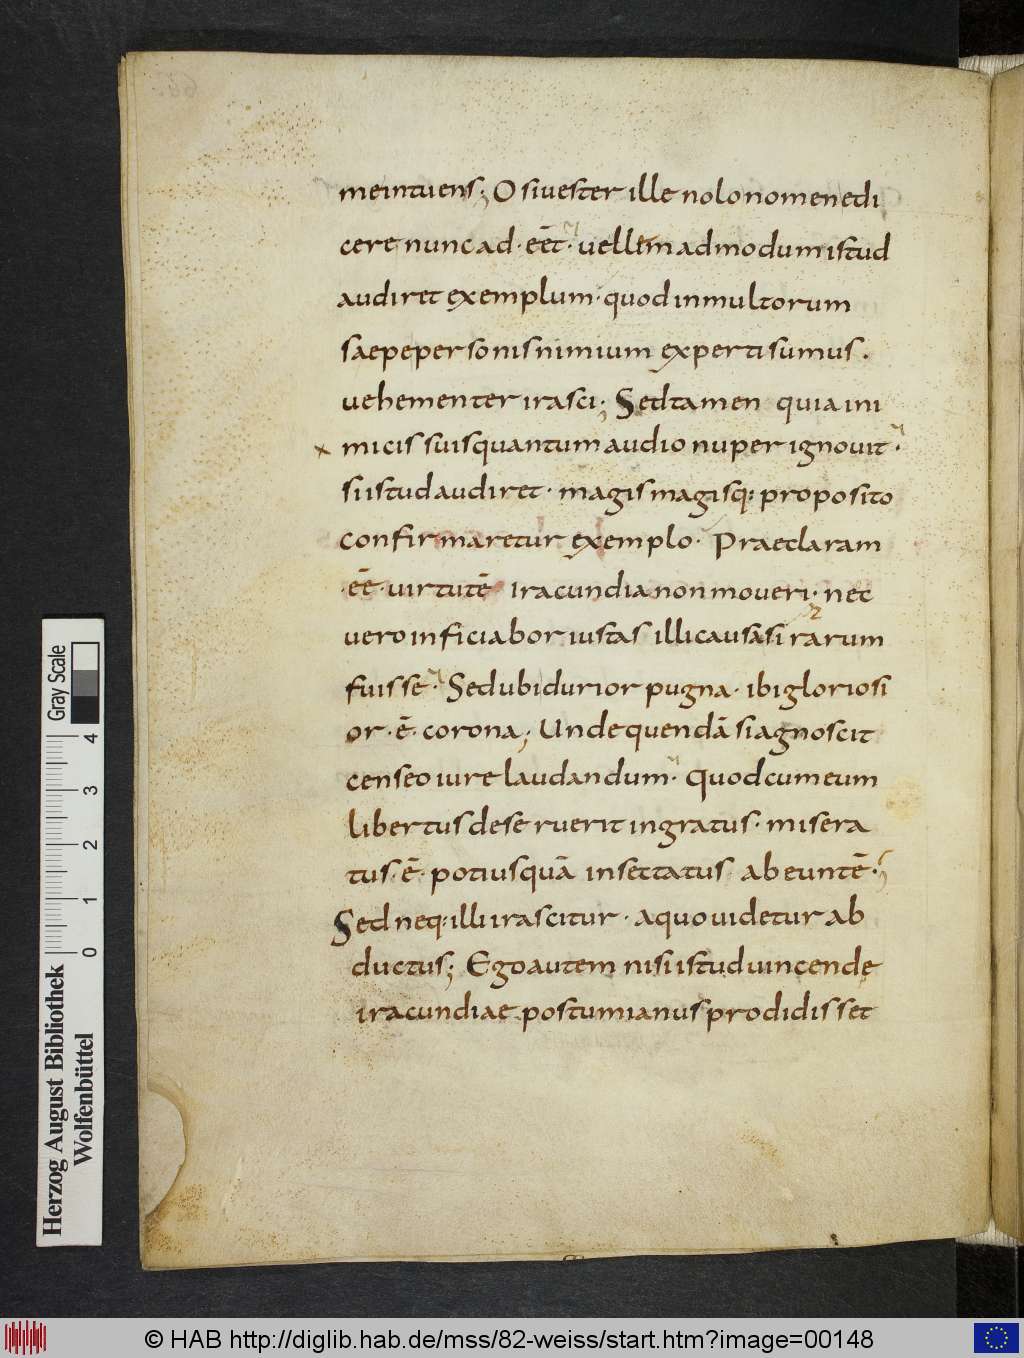 me intuens; O si vester ille nolo nomen edi
cere nunc adeēt· vellem admodum istud
audiret exemplum· quod in multorum
saepe personis nimium experti sumus.
vehementer irasci; Sed tamen quia ini
micis suis quantum audio nuper ignovit·
si istud audiret· magis magisq: proposito
confirmaretur exemplo· Praeclaram
·eē· virtutē iracundia non moveri· nec
vero inficiabor iustas illi causas irarum
fuisse· Sed ubi durior pugna· ibi gloriosi
or·ē· corona; Unde quendā si agnoscit
censeo iure laudandum· quod cum eum
libertus deseruerit ingratus· misera
tus·ē· potius quā insectatus abeuntē·
Sed neq: illi irascitur· a quo videtur ab
ductus; Ego autem nisi istud vincendę
iracundiae postumianus prodidisset
Gray Scale
4
3
2
1
0
Herzog August Bibliothek
Wolfenbüttel
© HAB http://diglib.hab.de/mss/82-weiss/start.htm?image=00148